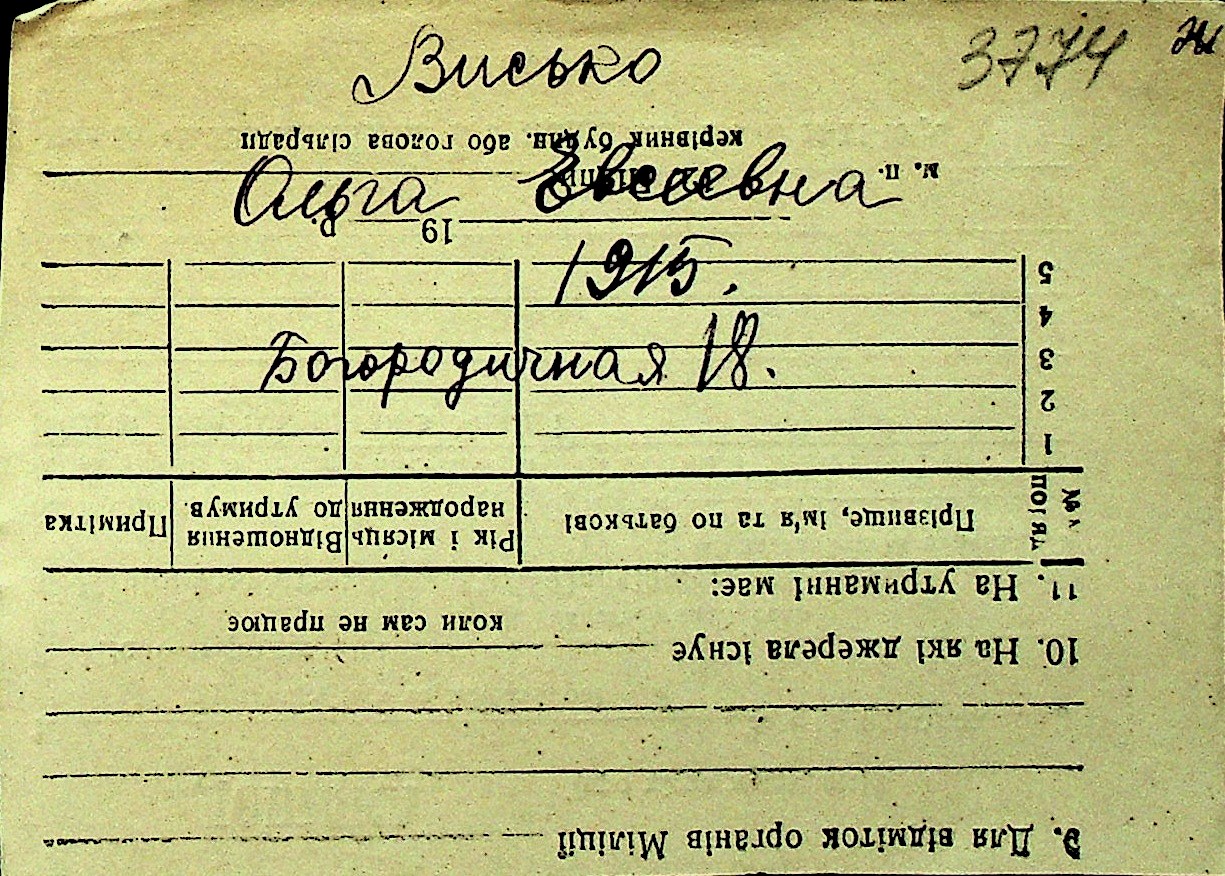 Висько
3774
Ольга Евсеевна
1915.
Богородичная 18.
9. Для відміток органів Міліції
10. На які джерела існує
коли сам не працює
11. На утриманні має:
Прізвище, ім'я та по батькові
Рік і місяць народження
Відношення до утримув.
Примітка
1
2
3
4
5
19 р.
м. п.
керівник будин. або голова сільради